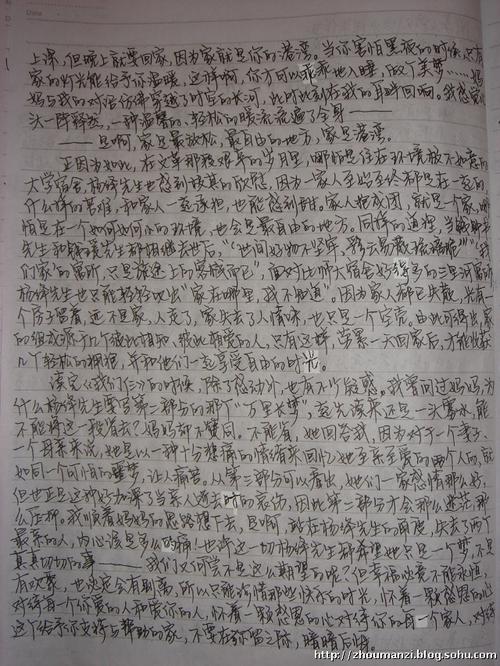 上课，但晚上就要回家，因为家就是你的港湾。当你害怕黑夜的时候，只有
家的灯光能给予你温暖，这样啊，你才可以乖乖地入睡，做个美梦……妈
妈与我的对话仿佛穿越了时空的长河，此时此刻在我的耳畔回响。我感觉心
头一阵释然，一种温馨的、轻松的暖流流遍了全身——
——是啊，家是最放松，最自由的地方，家是港湾。
正因为如此，在文革那艰难的岁月里，哪怕是住在环境极不如意的
大学宿舍，杨绛先生也感到极其的欣慰，因为一家人至始至终都是在一起的，
什么样的苦难，和家人一起承担，也能感到甜，家人抱成团，就是一个家，哪
怕是在一个如何如何小的环境，也会是最自由的地方。同样的道理，当
先生和 先生都相继去世后，“世间好物不坚牢，彩云易散琉璃脆”“我
们家的寓所，只是旅途上的客栈而已”，面对比那大宿舍好 的三里河寓所
杨绛先生也只能轻轻叹出“家在哪里，我不知道”。因为家人都已失散，光有一
个房子留着，还不是家，人走了，家失去了人情味，也只是一个空壳。由此可得出，家
的组成源于几个彼此相知，彼此相爱的人，只有这样，劳累一天回家后，才能收获
几个轻松的拥抱，并和他们一起享受自由的时光。
读完《我们仨》的时候，除了感动外，也有不少疑惑。我曾问过妈妈，为
什么杨绛先生要写第一部与的那个“万里长梦”，起先读来还是一头雾水，能
不能将这一段省去？妈妈却不赞同。不能省，她回答我，因为对于一个妻子、
一个母亲来说，她是以一种十分悲痛的情绪来回忆她至亲至爱的两个人的，就
如同一个可怕的噩梦，让人痛苦。从第三部分可以看出，她们一家感情那么好，
但也正是这种好加深了当亲人逝去时的哀伤，因此第二部分才会那么迷茫，那
么压抑。我顺着妈妈的思路想下去，是啊，站在杨绛先生的角度，失去了两个
最亲的人，内心该是多么的痛！也许这一切杨绛先生都希望她只是一个梦，不是
真真切切的事——我们又何尝不是这么期望的呢？但幸福总是不能永恒，
有欢聚，也注定会有别离，所以只能珍惜那些快乐的时光，怀着一颗感恩的心
对待每一个你爱的人和爱你的人，怀着一颗感恩的心对待你的每一个家人，对待
这个给予你支持与帮助的家，不要在弥留之际，暗暗后悔。
http://zhoumanzi.blog.sohu.com